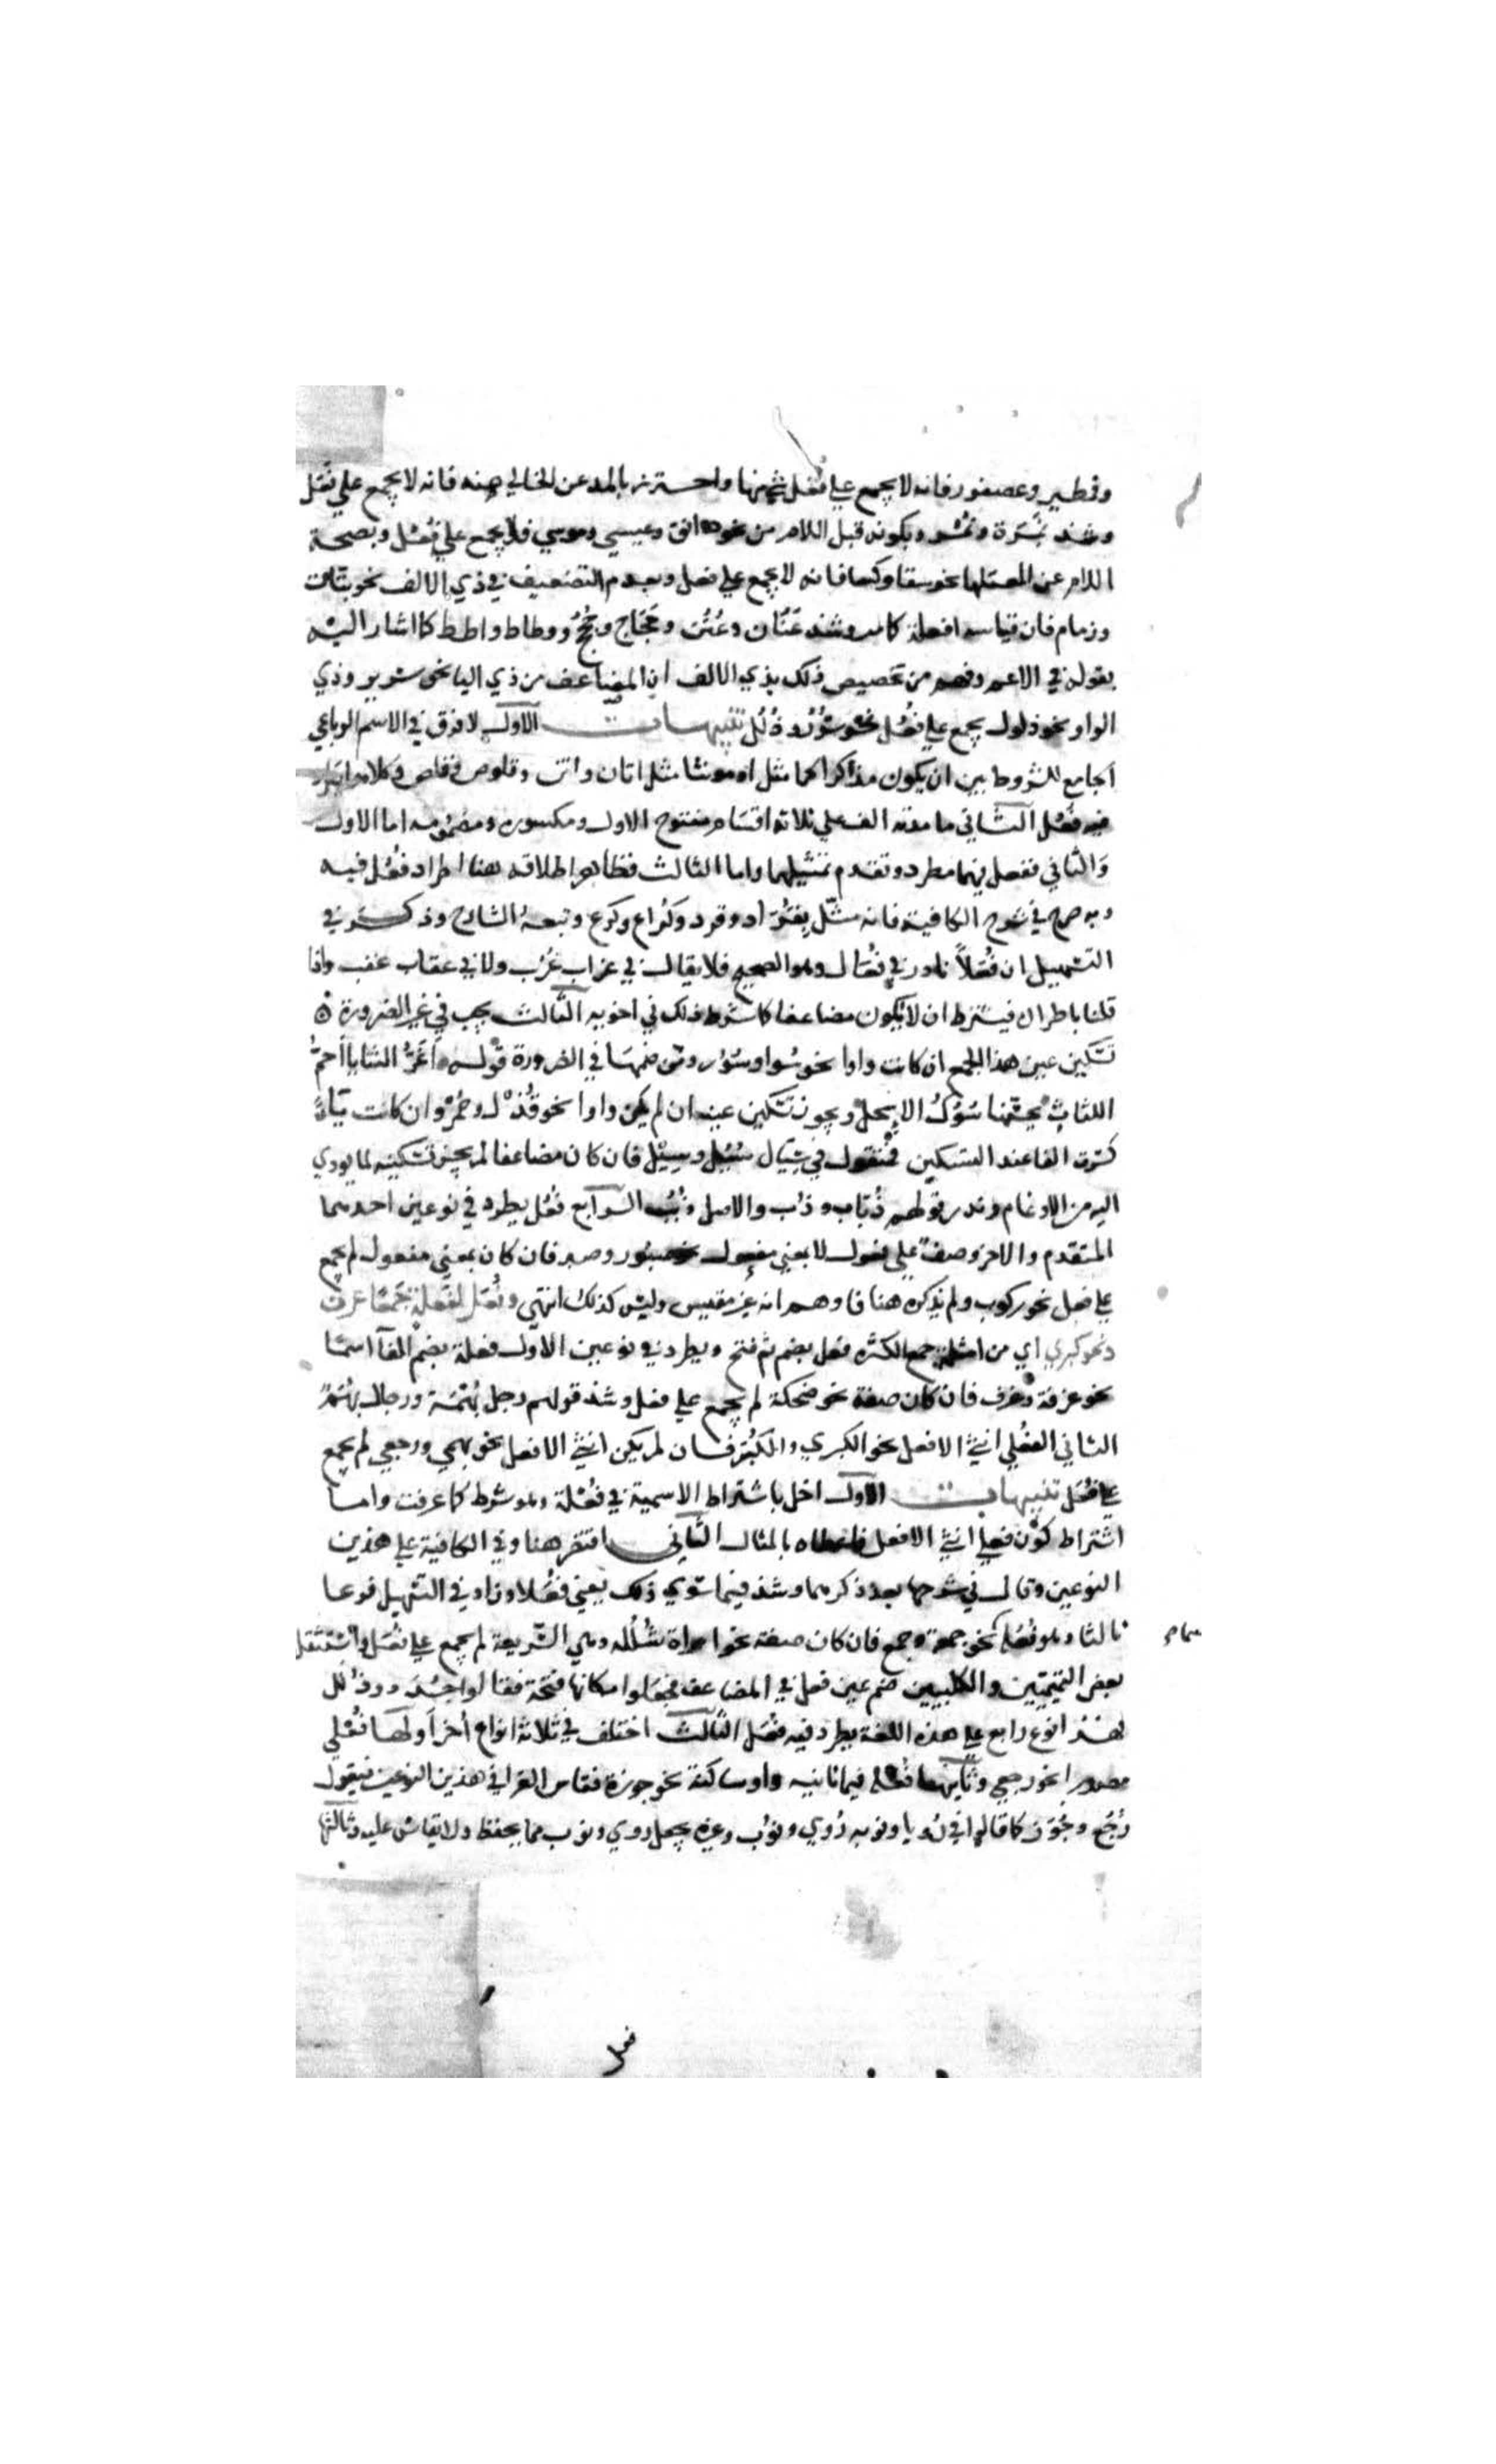 وقطير وعصفور فانه لا يجمع علي فُعُل شي منها واحترز بالمد عن الخالي منه فانه لا يجمع علي فُعُل
وشذ نَمِرَة ونُمُر وبكونه قبل اللام من نحو دانق وعيسي وموسي فلا يجمع علي فُعُل وبصحة
اللام عن المعتلها نحو سقا وكسا فانه لا يجمع علي فعل وبعدم التضعيف في ذي الالف نحو بتات
وزمام فان قياسه افعلة كما مر وشذ عَنَان وعُنُن وحَجَاج وحُجُج ووطاط واطط كما اشار اليه
بقوله في الاعم وفهم من تخصيص ذلك بذي الالف ان المضاعف من ذي اليا نحو سرير وذي
الواو نحو ذلول يجمع علي فُعُل نحو سُرُر وذُلُل تنبيهات الاول لا فرق في الاسم الرباعي
الجامع للشروط بين ان يكون مذكرا كما مثل او مونثا مثل اتان واتن وقلوص وقلص
فيه فُعُل الثاني ما مدته الف علي ثلاثة اقسام مفتوح الاول ومكسوره ومضمومه اما الاول
وَالثاني ففعل فيهما مطرد وتقدم تمثيلهما واما الثالث فظاهر اطلاقه هنا اطراد فُعُل فيه
وبه صرح في شرح الكافية فانه مثّل بقُرَاد وقرد وكُراع وكرع وتبعه الشارح وذكر في
التسهيل ان فُعُلاً نادر في فُعَال وهو الصحيح فلا يقال في غراب غُرُب ولا في عقاب عقب واذا
قلنا باطراده فيشترط ان لا يكون مضاعفا كما شرط ذلك في اخويه الثالث يجب في غير الضرورة
تسكين عين هذا الجمع ان كانت واوا نحو سُوار وسُوْر ومن ضمها في الضرورة قوله اَغَرُّ الثنايا احمُّ
اللثاثِ يحسّنها سُوُكُ الاِسْحِلِ ويجوز تسكين عينه ان لم يكن واوا نحو قُذْل وحُمْر وان كانت يَاءً
كسرت الفا عند التسكين فتقول في سِيَال سُيُل وسِيْل فان كان مضاعفا لم يجز تسكينه لما يودي
اليه من الادغام وندر قولهم ذُبَاب وذُب والاصل ذُبُب الرابع فُعُل يطرد في نوعين احدهما
المتقدم والاخر وصف علي فعول لا بمعني مفعول نحو صبور وصبر فان كان بمعني مفعول لم يجمع
علي فعل نحو ركوب ولم يذكره هنا فاوهم انه غير مقيس وليس كذلك انتهي وفُعَل لفُعْلة جَمعًا عرف
ونحو كبري اي من امثلة جمع الكثرة فعل بضم ثم فتح ويطرد في نوعين الاول فعلة بضم الفآ اسمًا
نحو غرفة وغرف فان كان صفة نحو ضحكة لم يجمع علي فعل وشذ قولهم رجل بُهْمَة ورجال بُهَمٌ
الثاني الفُعْلي انثي الافعل نحو الكبري والكُبَر فان لم يكن انثي الافعل نحو بهمي ورجعي لم يجمع
علي فُعَل تنبيهات الاول اخل باشتراط الاسمية في فُعْلة وهو شرط كما عرفت واما
اشتراط كون فعلي انثي الافعل فاعطاه بالمثال الثاني اقتصر هنا وفي الكافية علي هذين
النوعين وقال في شرحها بعد ذكرهما وشذ فيما سوي ذلك يعني فُعَلا وزاد في التسهيل نوعا
ثالثا وهو فُعُلة نحو جمعة وجمع فان كان صفة نحو امراة شُلُله وهي السّريعة لم يجمع علي فُعَل واستثقل
بعض التميميين والكلبيين ضم عين فعل في المضاعف فجعلوا مكانها فتحة فقالوا جُدَد وذُلَل
فهذا نوع رابع علي هذه اللغة يطرد فيه فُعَل الثالث اختلف في ثلاثة انواع اُخَر اَولها فُعْلي
مصدرا نحو رجعي وثانيها فعلة فيما ثانيه واو ساكنة نحو جوزة فقاس الفرا في هذين النوعين فيقول
رُجَع وجُوَز كما قالوا في رُويا ونوبه رُوي ونُوَب وغيره يجعل روي ونوب مما يحفظ ولا يقاس عليه وثالثها
فعل